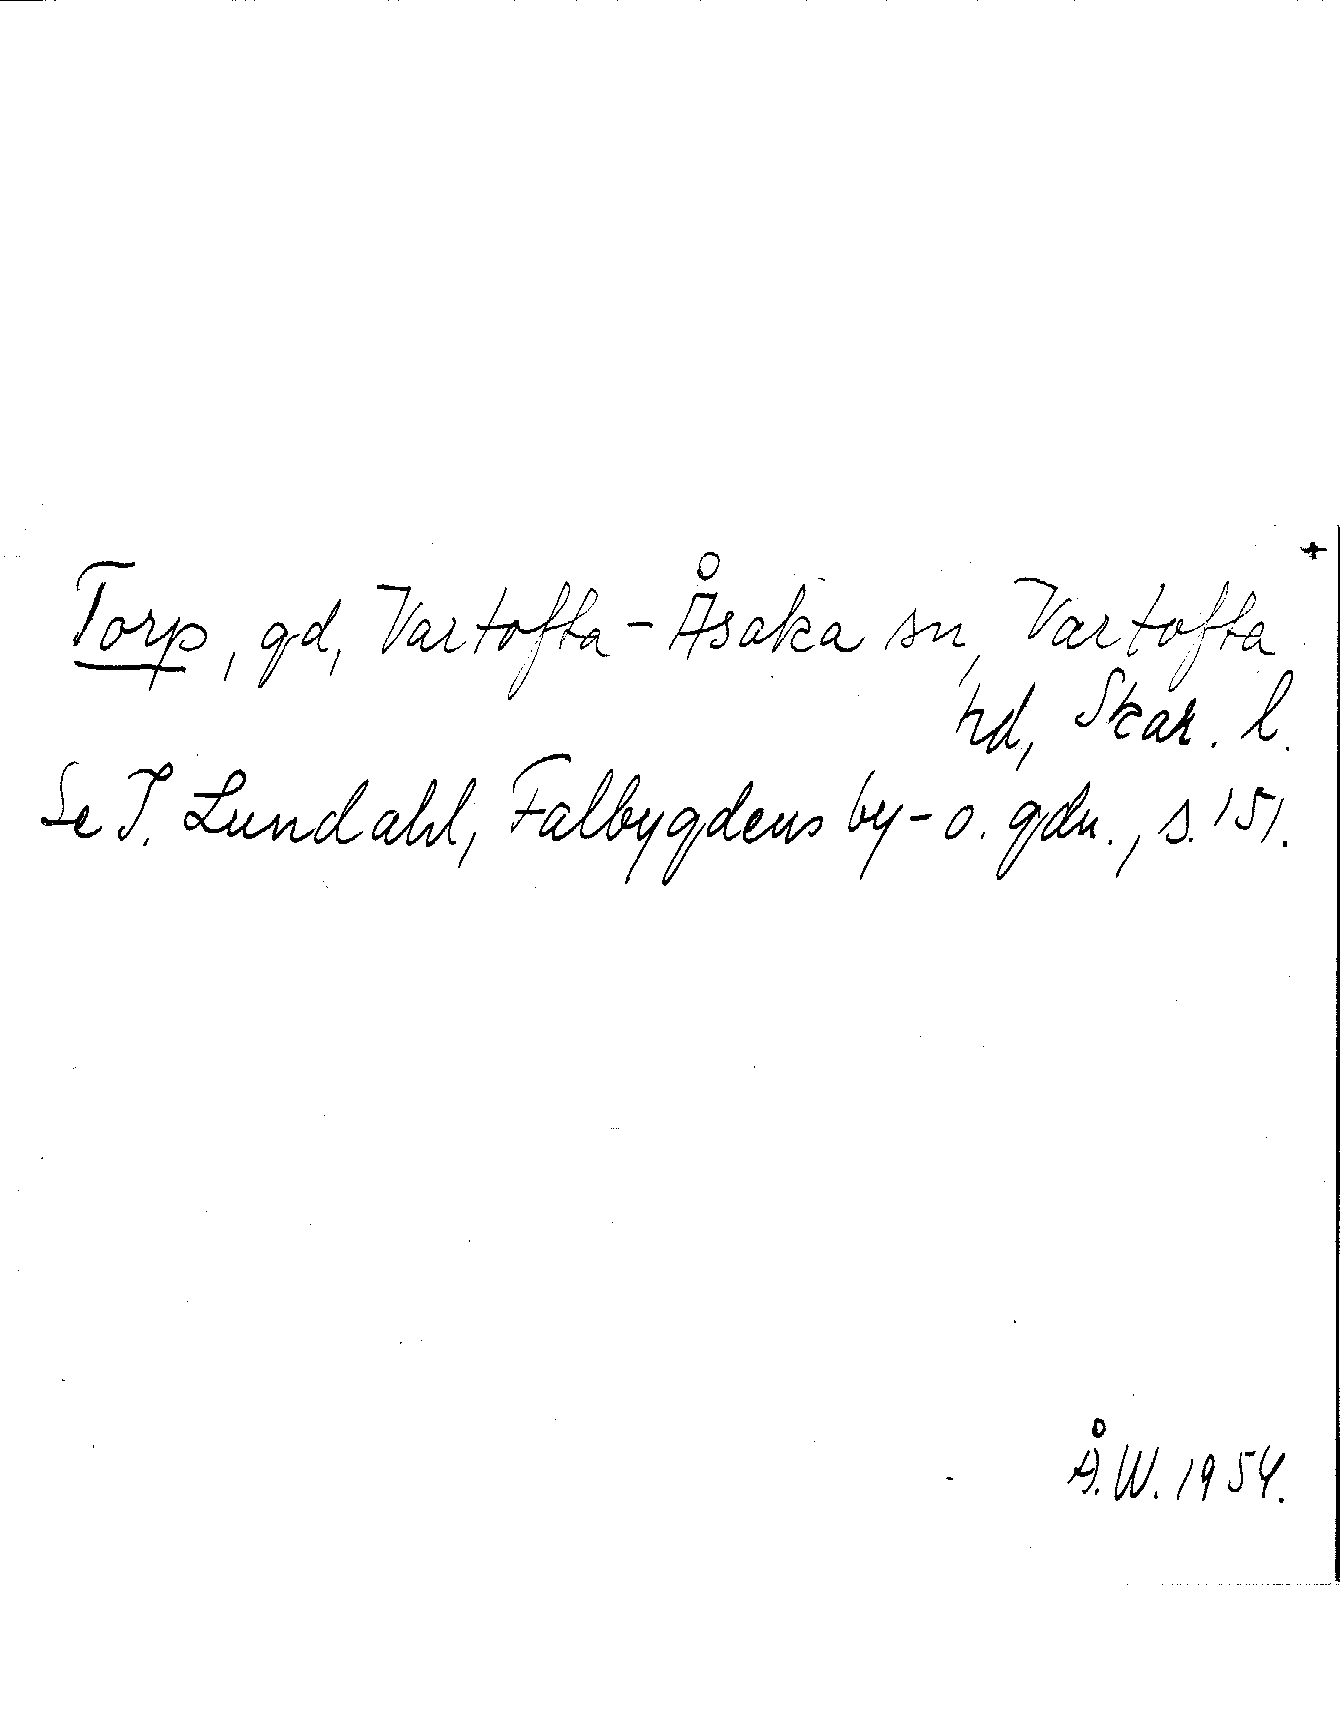 +
Torp, gd, Vartofta-Åsaka sn, Vartofta
hd, Skar. l.
Se I. Lundahl, Falbygdens by- o. gdn., s. 151.
Å.W. 1954.